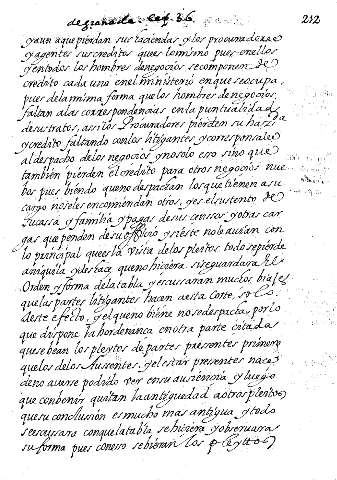 de granada. Leg. 36. 212
y aun a que pierdan sus haciendas y los procuradores
y agentes sus creditos que es lo mismo pues en ellos
y en todos los hombres de negocios se componen de
credito cada uno en el ministerio en que se ocupa
pues de la misma forma que los hombres de negocios
faltan a las correspondencias en la puntualidad
de sus tratos, assi los Procuradores pierden su hacienda
y credito faltando con los litigantes y correspondense
al despacho de los negocios y no solo esso sino que
tambien pierden el credito para otros negocios nue
bos pues biendo que no despachan los que tienen a su
cargo no se les encomiendan otros, y es el sustento de
su cassa y familia y pagas de sus censos y otras car
gas que penden de su officio y si este no le ayudan con
lo principal que es la vista de los pleytos todo se pierde
aniquila y destruce, que no hiciera si se guardara el
Orden y forma de la tabla y escusaran muchos biajes
que las partes litigantes hacen a esta Corte, solo
deste efecto, y el que biene no se despacha, por lo
que dispone la hordenanca en otra parte citada
que se bean los pleytos de partes pressentes primero
que los de los Ausentes, y el estar pressentes nace
de no averse podido ver en su aussencia y luego
que con benir quitan la antiguedad a otros pleytos
que su conclussion es mucho mas antigua, y todo
se escussara con que la tabla se hiciera y observara
su forma pues con esso se bieran los pleyttos